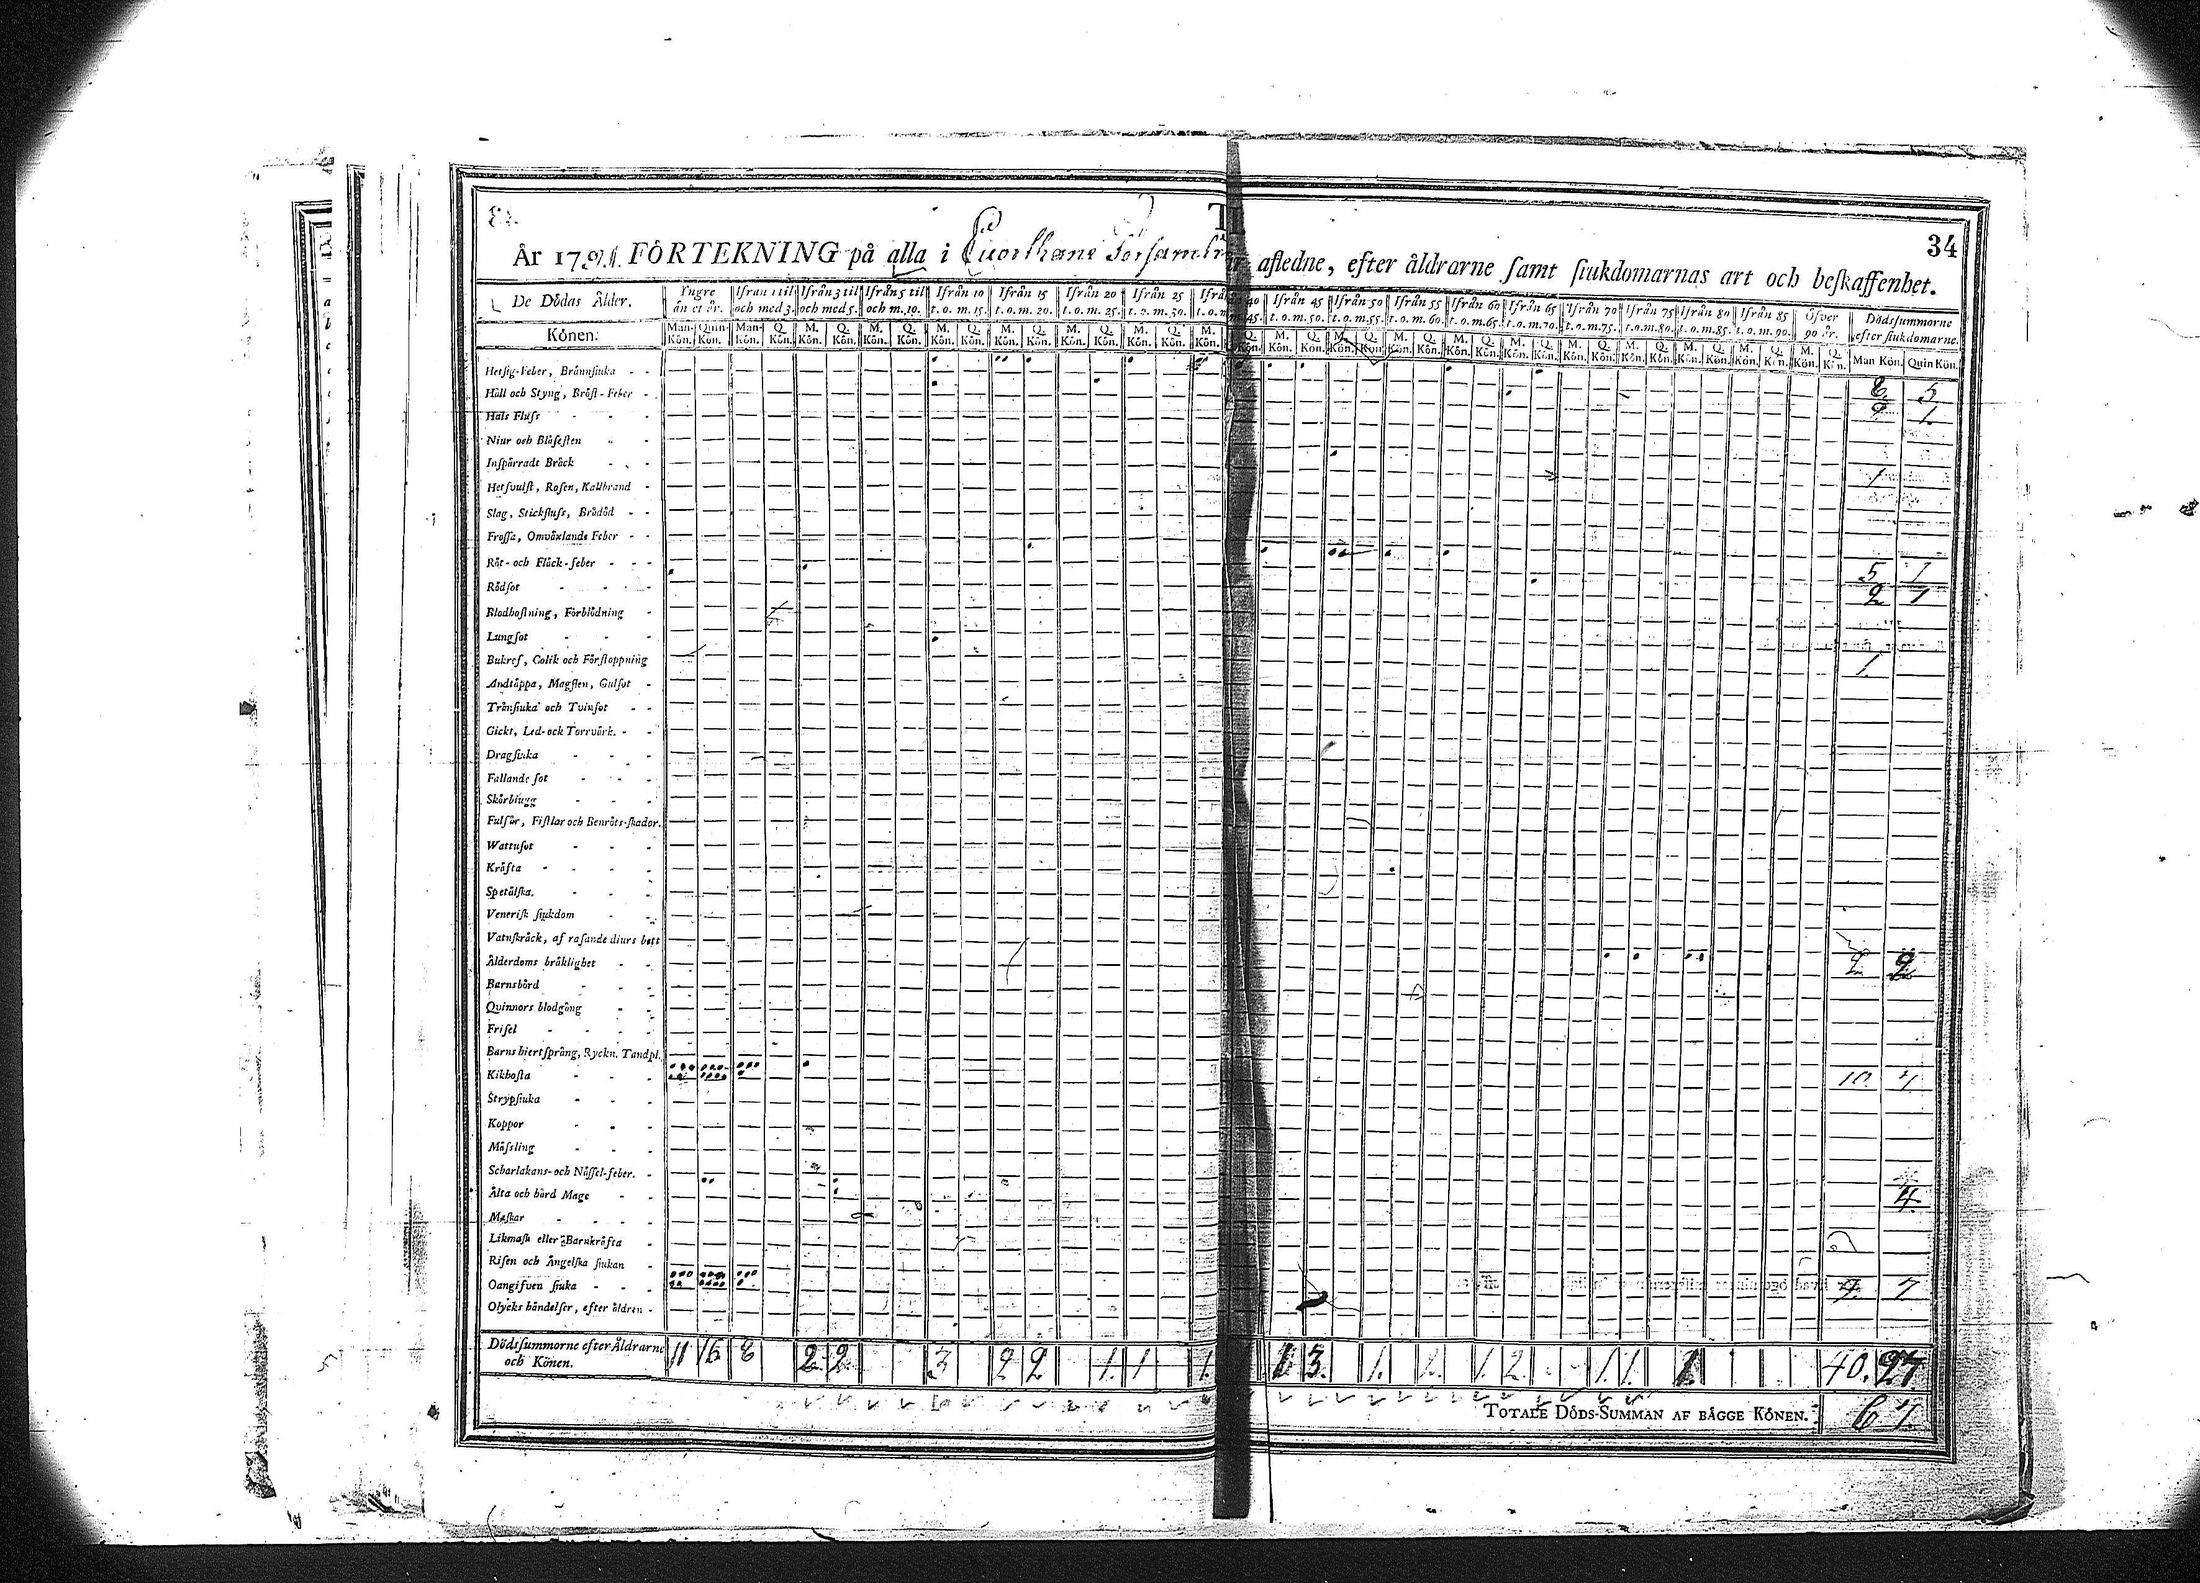 34
År 1791. FÖRTEKNING på alla i Församl afledne, efter åldrarne samt siukdomarnas art och beskaffenhet.
De Dödas Ålder. Yngre Ifrån 1 til Ifrån 3 til Ifrån 5 til Ifrån 10 Ifrån 15 Ifrån 20 Ifrån 25 Ifrån 40 Ifrån 45 Ifrån 50 Ifrån 55 Ifrån 60 Ifrån 65 Ifrån 70 Ifrån 75 Ifrån 80 Ifrån 85 Öfver Dödssummorne
än et år. och med 3. och med 5. och m. 10. t. o. m. 15. t. o. m. 20. t. o. m. 25. t. o. m. 30. t. o. m. 45. t. o. m. 50. t. o. m. 55. t. o. m. 60. t. o. m. 65. t. o. m. 70. t. o. m. 75. t. o. m. 80. t. o. m. 85. t. o. m. 90. 90 år. efter siukdomarne.
Könen. Man-Kön. Quin-Kön. Man-Kön. Q. Kön. M. Kön. Q. Kön. M. Kön. Q. Kön. M. Kön. Q. Kön. M. Kön. Q. Kön. M. Kön. Q. Kön. M. Kön. Q. Kön. M. Kön. Q. Kön. M. Kön. Q. Kön. M. Kön. Q. Kön. M. Kön. Q. Kön. M. Kön. Q. Kön. M. Kön. Q. Kön. M. Kön. Q. Kön. M. Kön. Q. Kön. M. Kön. Q. Kön. M. Kön. Q. Kön. M. Kön. Q. Kön. Man Kön. Quin Kön.
Hetsig-Feber, Brännsiuka - - 8 5
Håll och Styng, Bröst-Feber - 2 1.
Hals Fluss - - -
Niur och Blåsesten - -
Inspärradt Bråck - - -
Hetsvulst, Rosen, Kallbrand - 1
Slag, Stickfluss, Brådöd - -
Frossa, Omväxlande Feber - -
Röt- och Fläck-feber - - - 5 1
Rödsot - - - 2 1
Blodhostning, Förblödning -
Lungsot - - - 1.
Bukref, Colik och Förstoppning
Andtäppa, Magsten, Gulsot -
Trånsiuka och Tvinsot - -
Gickt, Led- ock Torrvärk. - -
Dragsiuka - - -
Fallande sot - - -
Skörbiugg - - -
Fulsår, Fistlar och Benröts-skador.
Wattusot - - -
Kräfta - - - -
Spetälska. - - -
Venerisk siukdom - -
Vatnskräck, af rasande diurs bett
Ålderdoms bräklighet - - 2 2
Barnsbörd - - -
Quinnors blodgång - -
Frisel - - - -
Barns hiertsprång, Ryckn. Tandpl.
Kikhosta - - - 10. 7
Strypsiuka - - -
Koppor - - -
Mässling - - -
Scharlakans- och Nässel-feber. -
Älta och hård Mage - - 4.
Maskar - - - -
Likmask eller Barnkräfta -
Risen och Ängelska siukan -
Oangifven siuka - - - 9. 7
Olycks händelser, efter åldren -
Dödssummorne efter Åldrarne 11 16 8 2 2 3 2 2 1. 1 1. 1 3. 1. 1. 1. 2. 1. 1. 1. 40. 27.
och Könen.
TOTALE DÖDS-SUMMAN AF BÅGGE KÖNEN. 67.